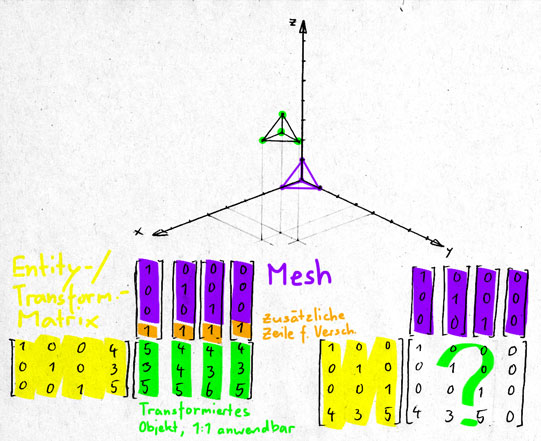 z
x
y
Entity-/
Transform.-
Matrix
1 0 0 0
0 1 0 0
0 0 1 0
1 1 1 1
Mesh
zusätzliche
Zeile f. Versch.
1 0 0 4
0 1 0 3
0 0 1 5
5 4 4 4
3 4 3 3
5 5 6 5
Transformiertes
Objekt, 1:1 anwendbar
0 0 0
0 1 0 0
0 0 1 0
1 0 0
0 1 0
0 0 1
4 3 5
1 0 0 0
0 1 0 0
0 0 1 0
4 3 5 0
?